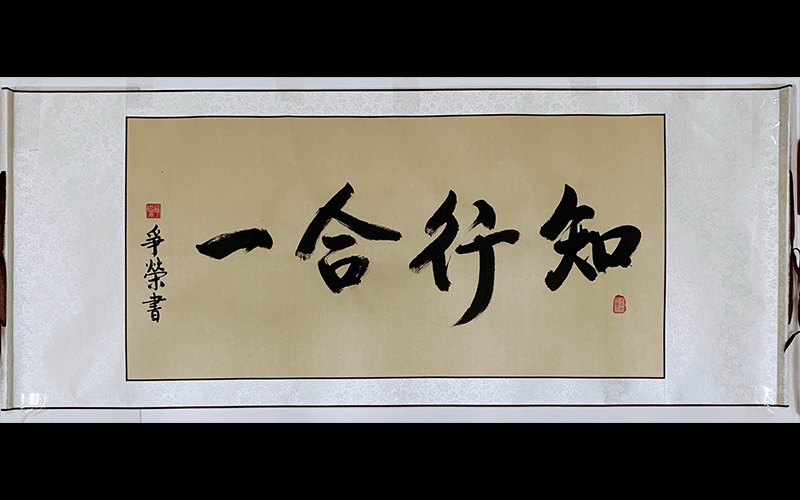 知行合一
爭榮書